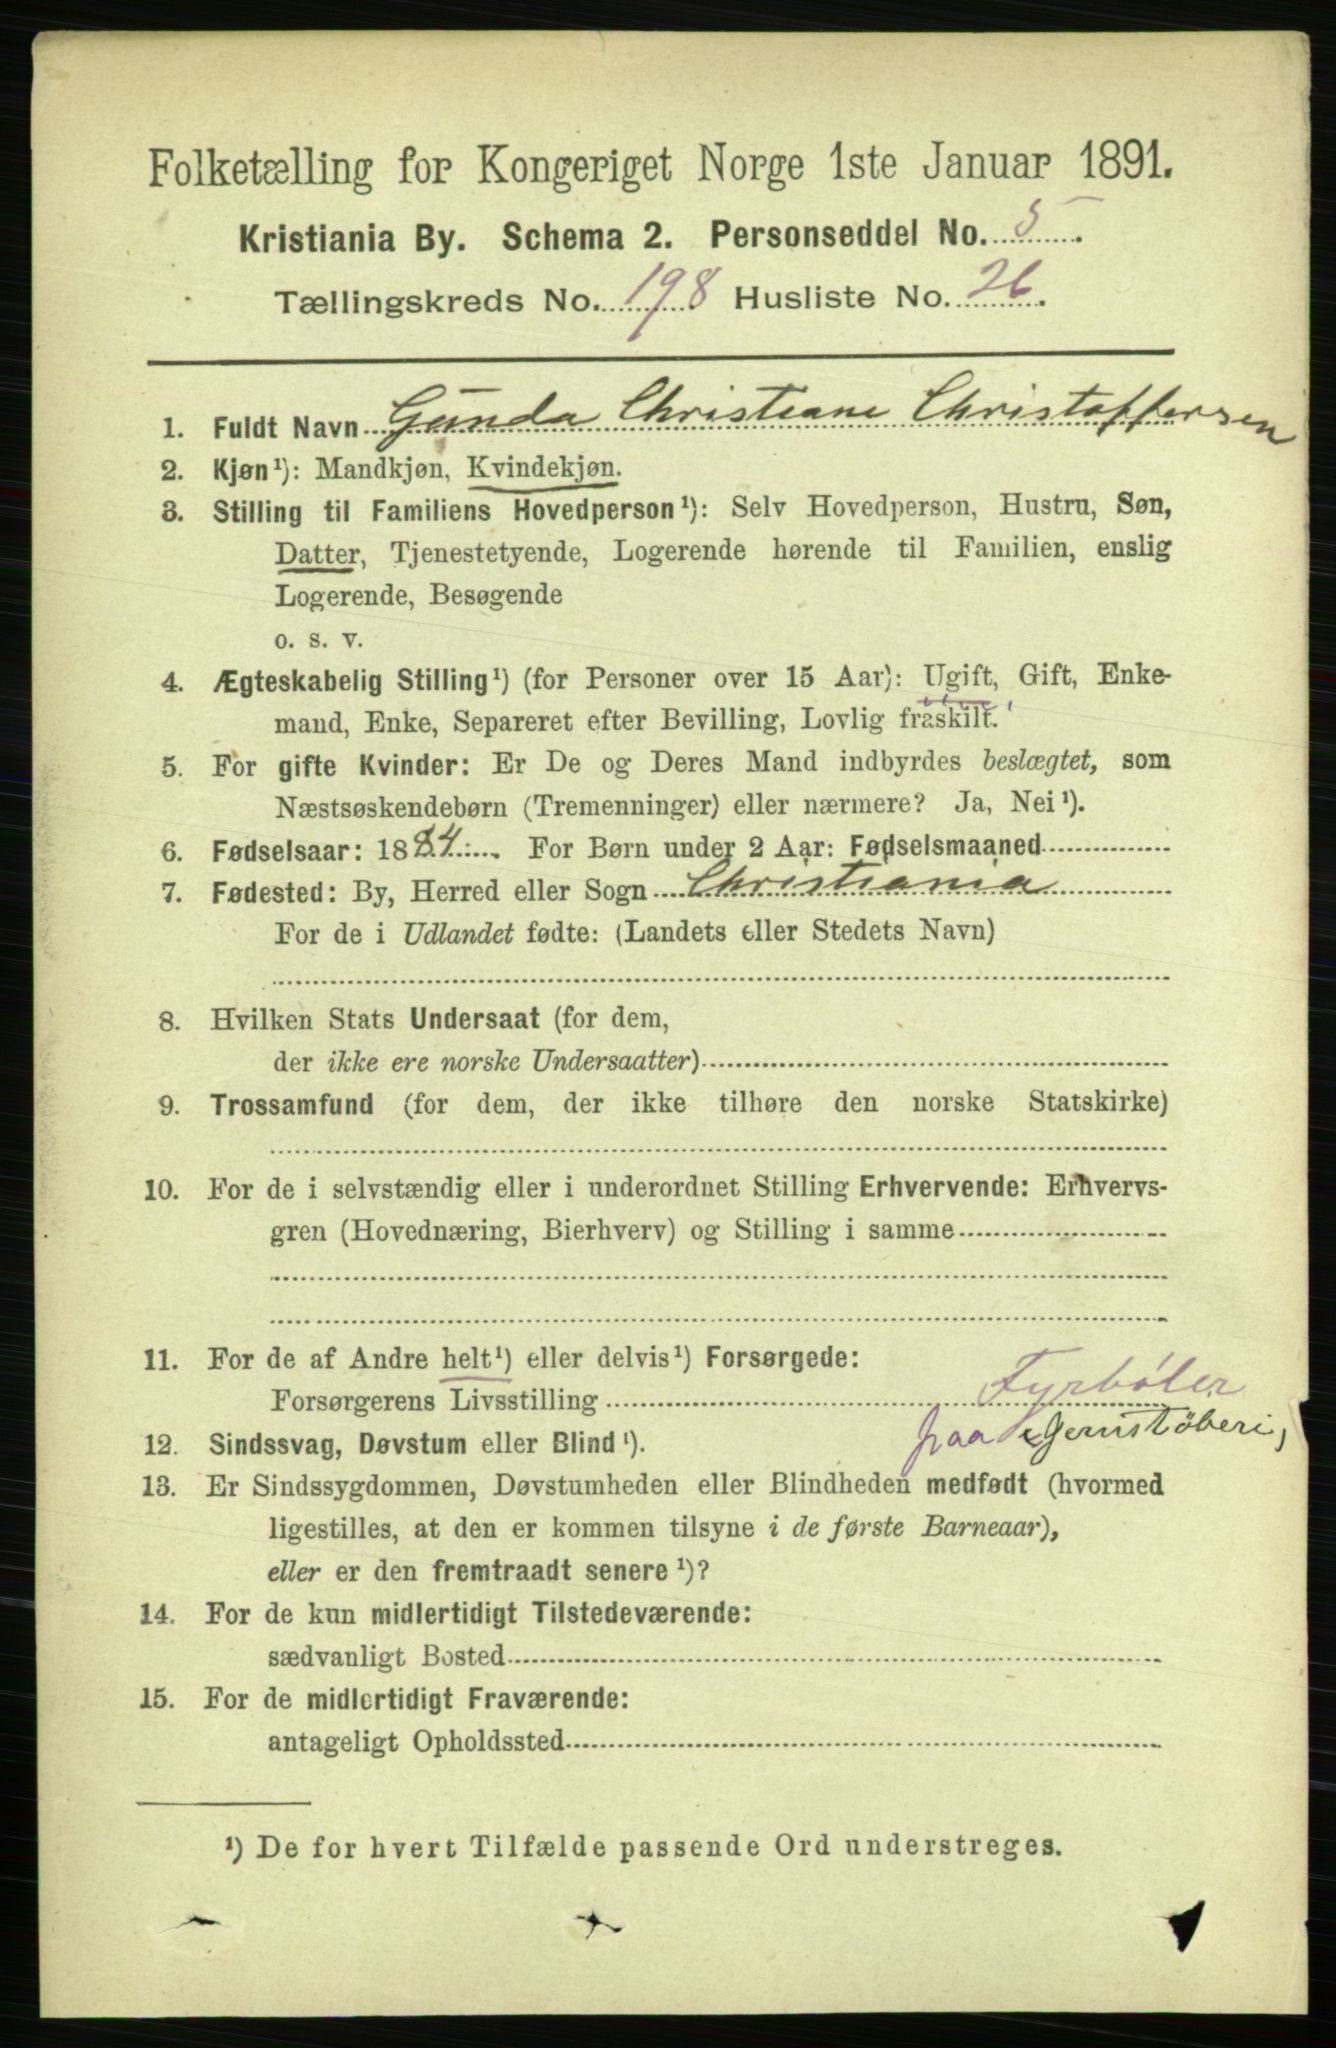 Folketælling for Kongeriget Norge 1ste Januar 1891.
Kristiania By. Schema 2. Personseddel No. 5.
Tællingskreds No. 198 Husliste No. 26.
1. Fuldt Navn Gunda Christiane Christoffersen
2. Kjøn¹): Mandkjøn, Kvindekjøn.
3. Stilling til Familiens Hovedperson¹): Selv Hovedperson, Hustru, Søn,
Datter, Tjenestetyende, Logerende hørende til Familien, enslig
Logerende, Besøgende
o. s. v.
4. Ægteskabelig Stilling¹) (for Personer over 15 Aar): Ugift, Gift, Enke-
mand, Enke, Separeret efter Bevilling, Lovlig fraskilt.
5. For gifte Kvinder: Er De og Deres Mand indbyrdes beslægtet, som
Næstsøskendebørn (Tremenninger) eller nærmere? Ja, Nei¹).
6. Fødselsaar: 1884. For Børn under 2 Aar: Fødselsmaaned
7. Fødested: By, Herred eller Sogn Christiania
For de i Udlandet fødte: (Landets eller Stedets Navn)
8. Hvilken Stats Undersaat (for dem,
der ikke ere norske Undersaatter)
9. Trossamfund (for dem, der ikke tilhøre den norske Statskirke)
10. For de i selvstændig eller i underordnet Stilling Erhvervende: Erhvervs-
gren (Hovednæring, Bierhverv) og Stilling i samme
11. For de af Andre helt¹) eller delvis¹) Forsørgede:
Forsørgerens Livsstilling Fyrbøder
paa Jernstøberi,
12. Sindssvag, Døvstum eller Blind¹).
13. Er Sindssygdommen, Døvstumheden eller Blindheden medfødt (hvormed
ligestilles, at den er kommen tilsyne i de første Barneaar),
eller er den fremtraadt senere¹)?
14. For de kun midlertidigt Tilstedeværende:
sædvanligt Bosted
15. For de midlertidigt Fraværende:
antageligt Opholdssted
¹) De for hvert Tilfælde passende Ord understreges.